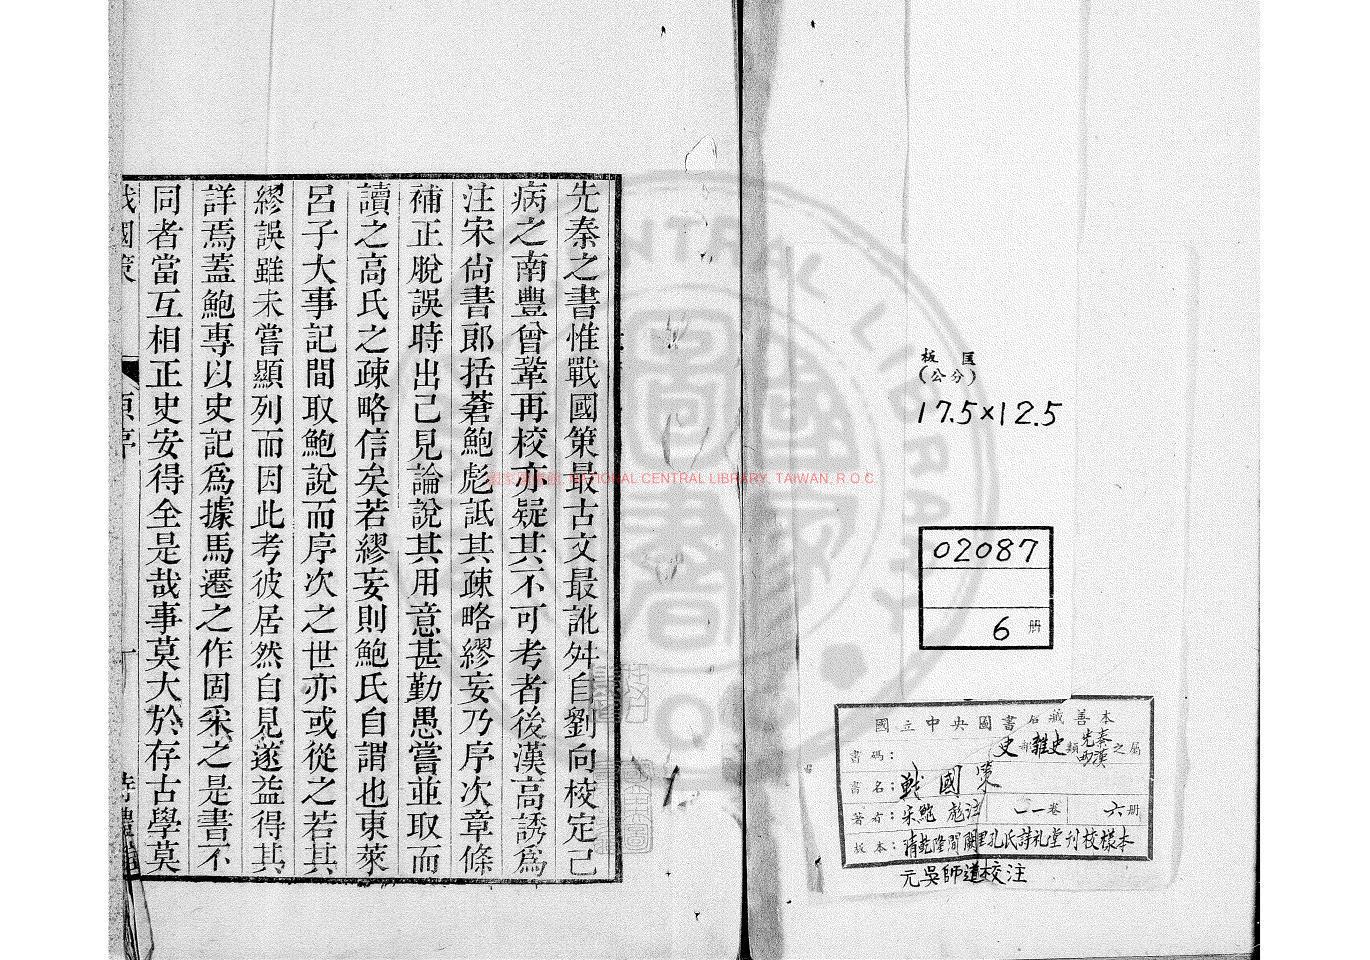 板匡
(公分)
17.5×12.5
02087
6 冊
國立中央圖書館藏善本
書碼：史部雜史類先秦西漢之屬
書名：戰國策
著者：宋鮑彪注 一一卷 六冊
板本：清乾隆間闕里孔氏詩礼堂刊校樣本
元吳師道校注
先秦之書惟戰國策最古文最訛舛自劉向校定已
病之南豐曾鞏再校亦疑其不可考者後漢高誘爲
注宋尚書郎括蒼鮑彪詆其疎略繆妄乃序次章條
補正脫誤時出己見論說其用意甚勤愚嘗並取而
讀之高氏之疎略信矣若繆妄則鮑氏自謂也東萊
呂子大事記間取鮑說而序次之世亦或從之若其
繆誤雖未嘗顯列而因此考彼居然自見遂益得其
詳焉蓋鮑專以史記爲據馬遷之作固采之是書不
同者當互相正史安得全是哉事莫大於存古學莫
戰國策
NATIONAL CENTRAL LIBRARY, TAIWAN, R.O.C